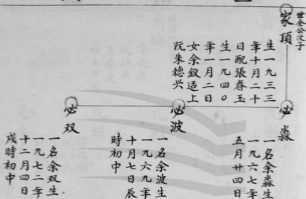 世金公次子
家頂
生一九三三
年十月二十
日配張春玉
生一九四〇
年一月二日
女余叙适上
阮朱德兴
必淼
一名余淼生
一九六七年
五月廿四日
必波
一名余波生
一九六九年
十月七日辰
時初中
必双
一名余双生
一九七二年
十二月四日
戌時初中